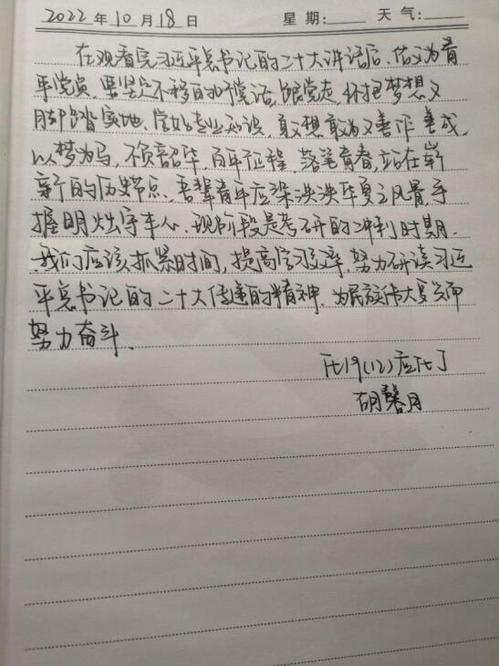 2022 年 10 月 18 日 星期: 天气:
在观看完习近平总书记的二十大讲话后,作为青
年党员,要坚定不移的听党话,跟党走,怀抱梦想又
脚踏实地,学好专业知识,敢想敢为又善作善成,
以梦为马,不负韶华,百年征程,落笔青春,站在崭
新的历史节点,吾辈青年应染泱泱华夏之风骨,手
握明灿守车心.现阶段是考研的冲刺时期.
我们应该抓紧时间,提高学习效率,努力研读习近
平总书记的二十大传递的精神,为民族伟大复兴而
努力奋斗.
19(12)应化丁
胡馨月